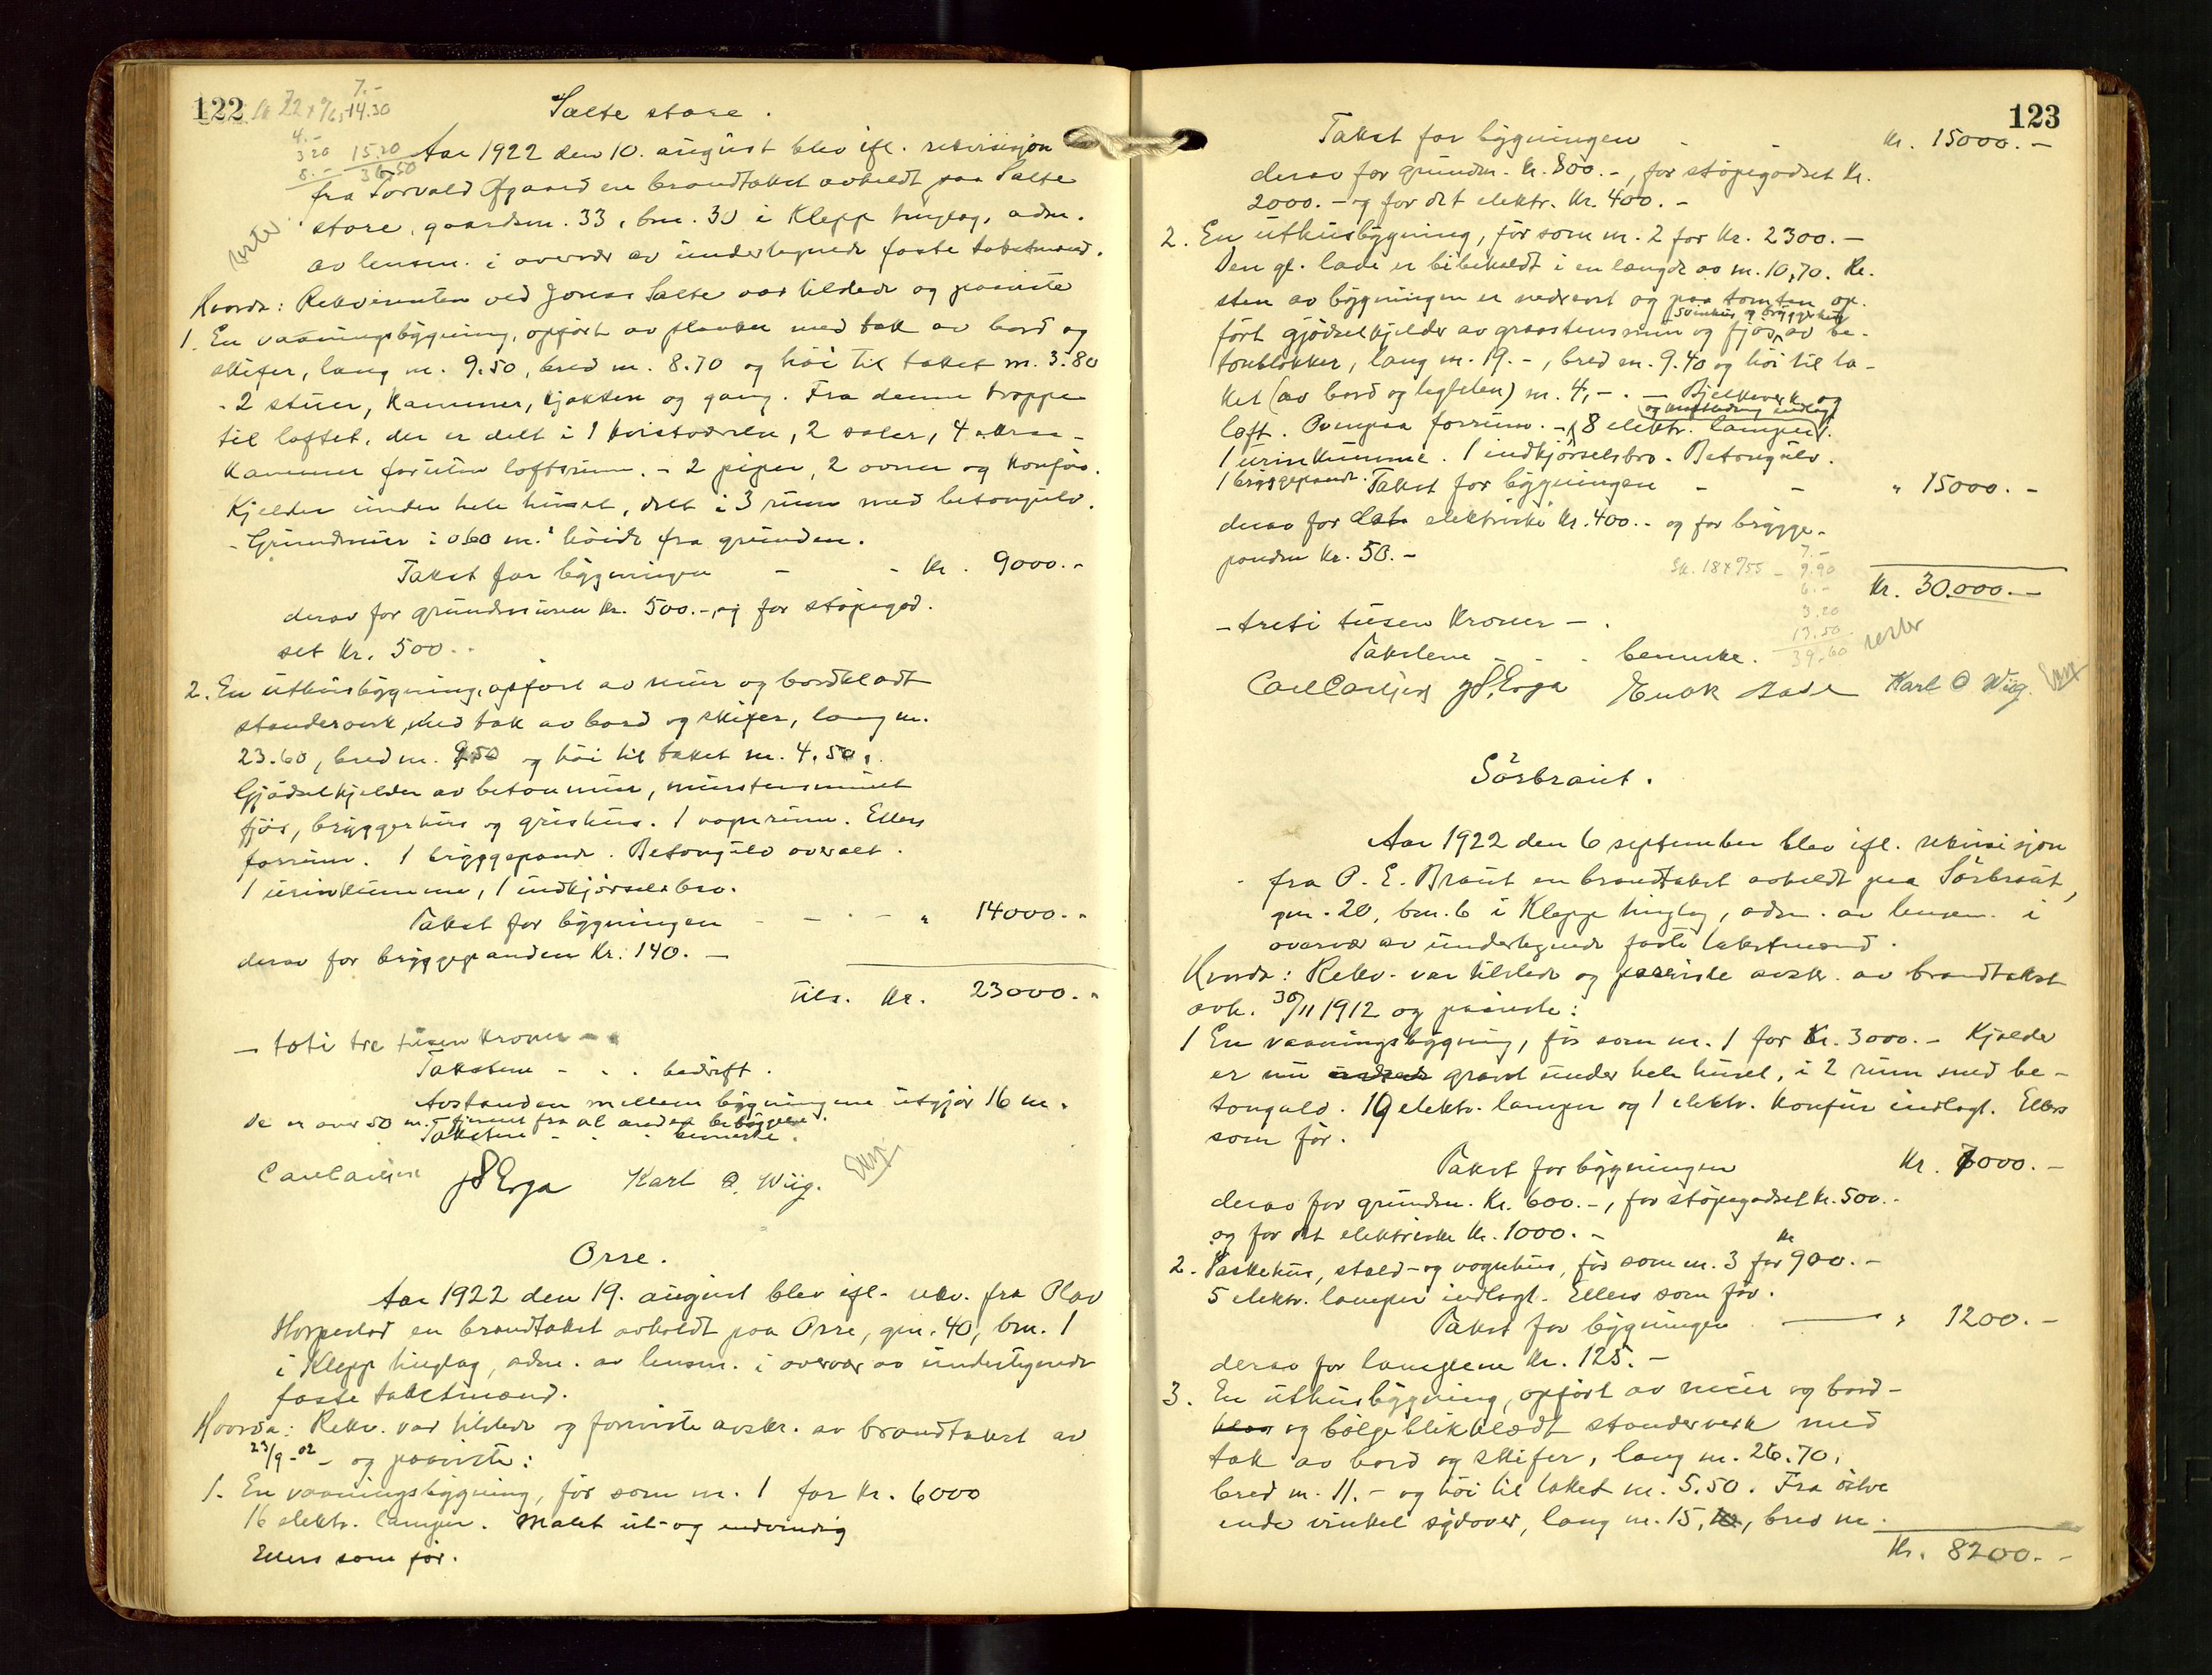 122
7.-
14.30
4.-
3.20 15.20
8.- 36.50
Salte store.
Aar 1922 den 10. august blev ifl. rekvisisjon
fra Torvald Øgaard en brandtakst avholdt paa Salte
store, gaardsnr. 33, bnr. 30 i Klepp tinglag, adm.
av lensm. i overvær av undertegnede faste takstmænd.
Hvorda: Rekvirenten ved Jonas Salte var tilstede og paaviste
1. En vaaningsbygning, opført av planker med tak av bord og
skifer, lang m. 9.50, bred m. 8.70 og høi til taket m. 3.80
- 2 stuer, kammer, kjøkken og gang. Fra denne trappe
til loftet, der er delt i 1 kvistværelse, 2 saler, 4 skraa-
kammer foruten loftsrum. - 2 piper, 2 ovner og komfur.
Kjelder under hele huset, delt i 3 rum med betongulv.
- Grundmur i 0.60 m.s høide fra grunden.
Takst for bygningen - - Kr. 9000.-
derav for grundmuren Kr. 500.-, og for støpegod-
set Kr. 500.-
2. En uthusbygning, opført av mur og bordklædt
standerverk, med tak av bord og skifer, lang m.
23.60, bred m. 9.50 og høi til taket m. 4.50.
Gjødselkjelder av betonmur, murstensmuret
fjøs, bryggerhus og grishus. 1 vognrum. Ellers
forrum. 1 bryggepande. Betongulv overalt.
1 urinkumme, 1 indkjørselsbro.
Takst for bygningen - - - " 14000.-
derav for bryggepanden Kr. 140.-
tils. Kr. 23000.-
- toti tre tusen kroner -
Takstene - . . bedrift.
Avstanden mellem bygningene utgjør 16 m.
De er over 50 m. fjernet fra al anden bebyggelse.
Takstene - . . bemerke.
Carl Carlsen JS Erga Karl O. Wiig.
Orre.
Aar 1922 den 19. august blev ifl. rekv. fra Olav
Horpestad en brandtakst avholdt paa Orre, gnr. 40, bnr. 1
i Klepp tinglag, adm. av lensm. i overvær av undertegnede
faste takstmænd.
Hvorda: Rekv. var tilstede og foreviste avskr. av brandtakst av
23/9-02 - og paaviste:
1. En vaaningsbygning, før som nr. 1 for Kr. 6000
16 elektr. lamper. Malet ut- og indvendig
Ellers som før.
123
Takst for bygningen - - Kr. 15000.-
derav for grundm. Kr. 800.-, for støpegodset Kr.
2000.- og for det elektr. Kr. 400.-
2. En uthusbygning, før som nr. 2 for Kr. 2300.-
Den gl. lade er bibeholdt i en længde av m. 10,70. Re-
sten av bygningen er nedrevet og paa tomten op-
ført gjødselkjelder av graastensmur og fjøs, svinhus og bryggerhus av be-
tonblokker, lang m. 19.-, bred m. 9.40 og høi til ta-
ket (av bord og teglsten) m. 4,-. - Bjelkeverk og
loft. Ovenpaa forrum. - 8 elektr. lamper og kraftledning indlagt.
1 urinkumme. 1 indkjørselsbro. Betongulv.
1 bryggepande. Takst for bygningen - - " 15000.-
derav for det elektriske Kr. 400.- og for brygge-
panden Kr. 50.-
7.-
9.90
6.-
3.20
13.50
39.60
Kr. 30.000.-
- treti tusen kroner - .
Takstene - . . bemerke.
Carl Carlsen JS. Erga Enok Karl O Wiig.
Sørbraut.
Aar 1922 den 6 september blev ifl. rekvisisjon
fra P. E. Braut en brandtakst avholdt paa Sørbraut,
gnr. 20, bnr. 6 i Klepp tinglag, adm. av lensm. i
overvær av undertegnede faste takstmænd.
Hvorda: Rekv. var tilstede og foreviste avskr. av brandtakst
avh. 30/11 1912 og paaviste:
1 En vaaningsbygning, før som nr. 1 for Kr. 3000.- Kjelder
er nu gravet under hele huset, i 2 rum med be-
tongulv. 10 elektr. lamper og 1 elektr. komfur indlagt. Ellers
som før.
Takst for bygningen Kr. 7000.-
derav for grundm. Kr. 600.-, for støpegodset Kr. 500.-
og for det elektriske Kr. 1000.-
2. Vaskehus, stald- og vognhus, før som nr. 3 for Kr 900.-
5 elektr. lamper indlagt. Ellers som før.
Takst for bygningen - " 1200.-
derav for lampene Kr. 125.-
3. En uthusbygning, opført av mur og bord-
og bølgeblikklædt standerverk med
tak av bord og skifer, lang m. 26.70,
bred m. 11.- og høi til taket m. 5.50. Fra østre
ende vinkel sydover, lang m. 15, bred m.
Kr. 8200.-